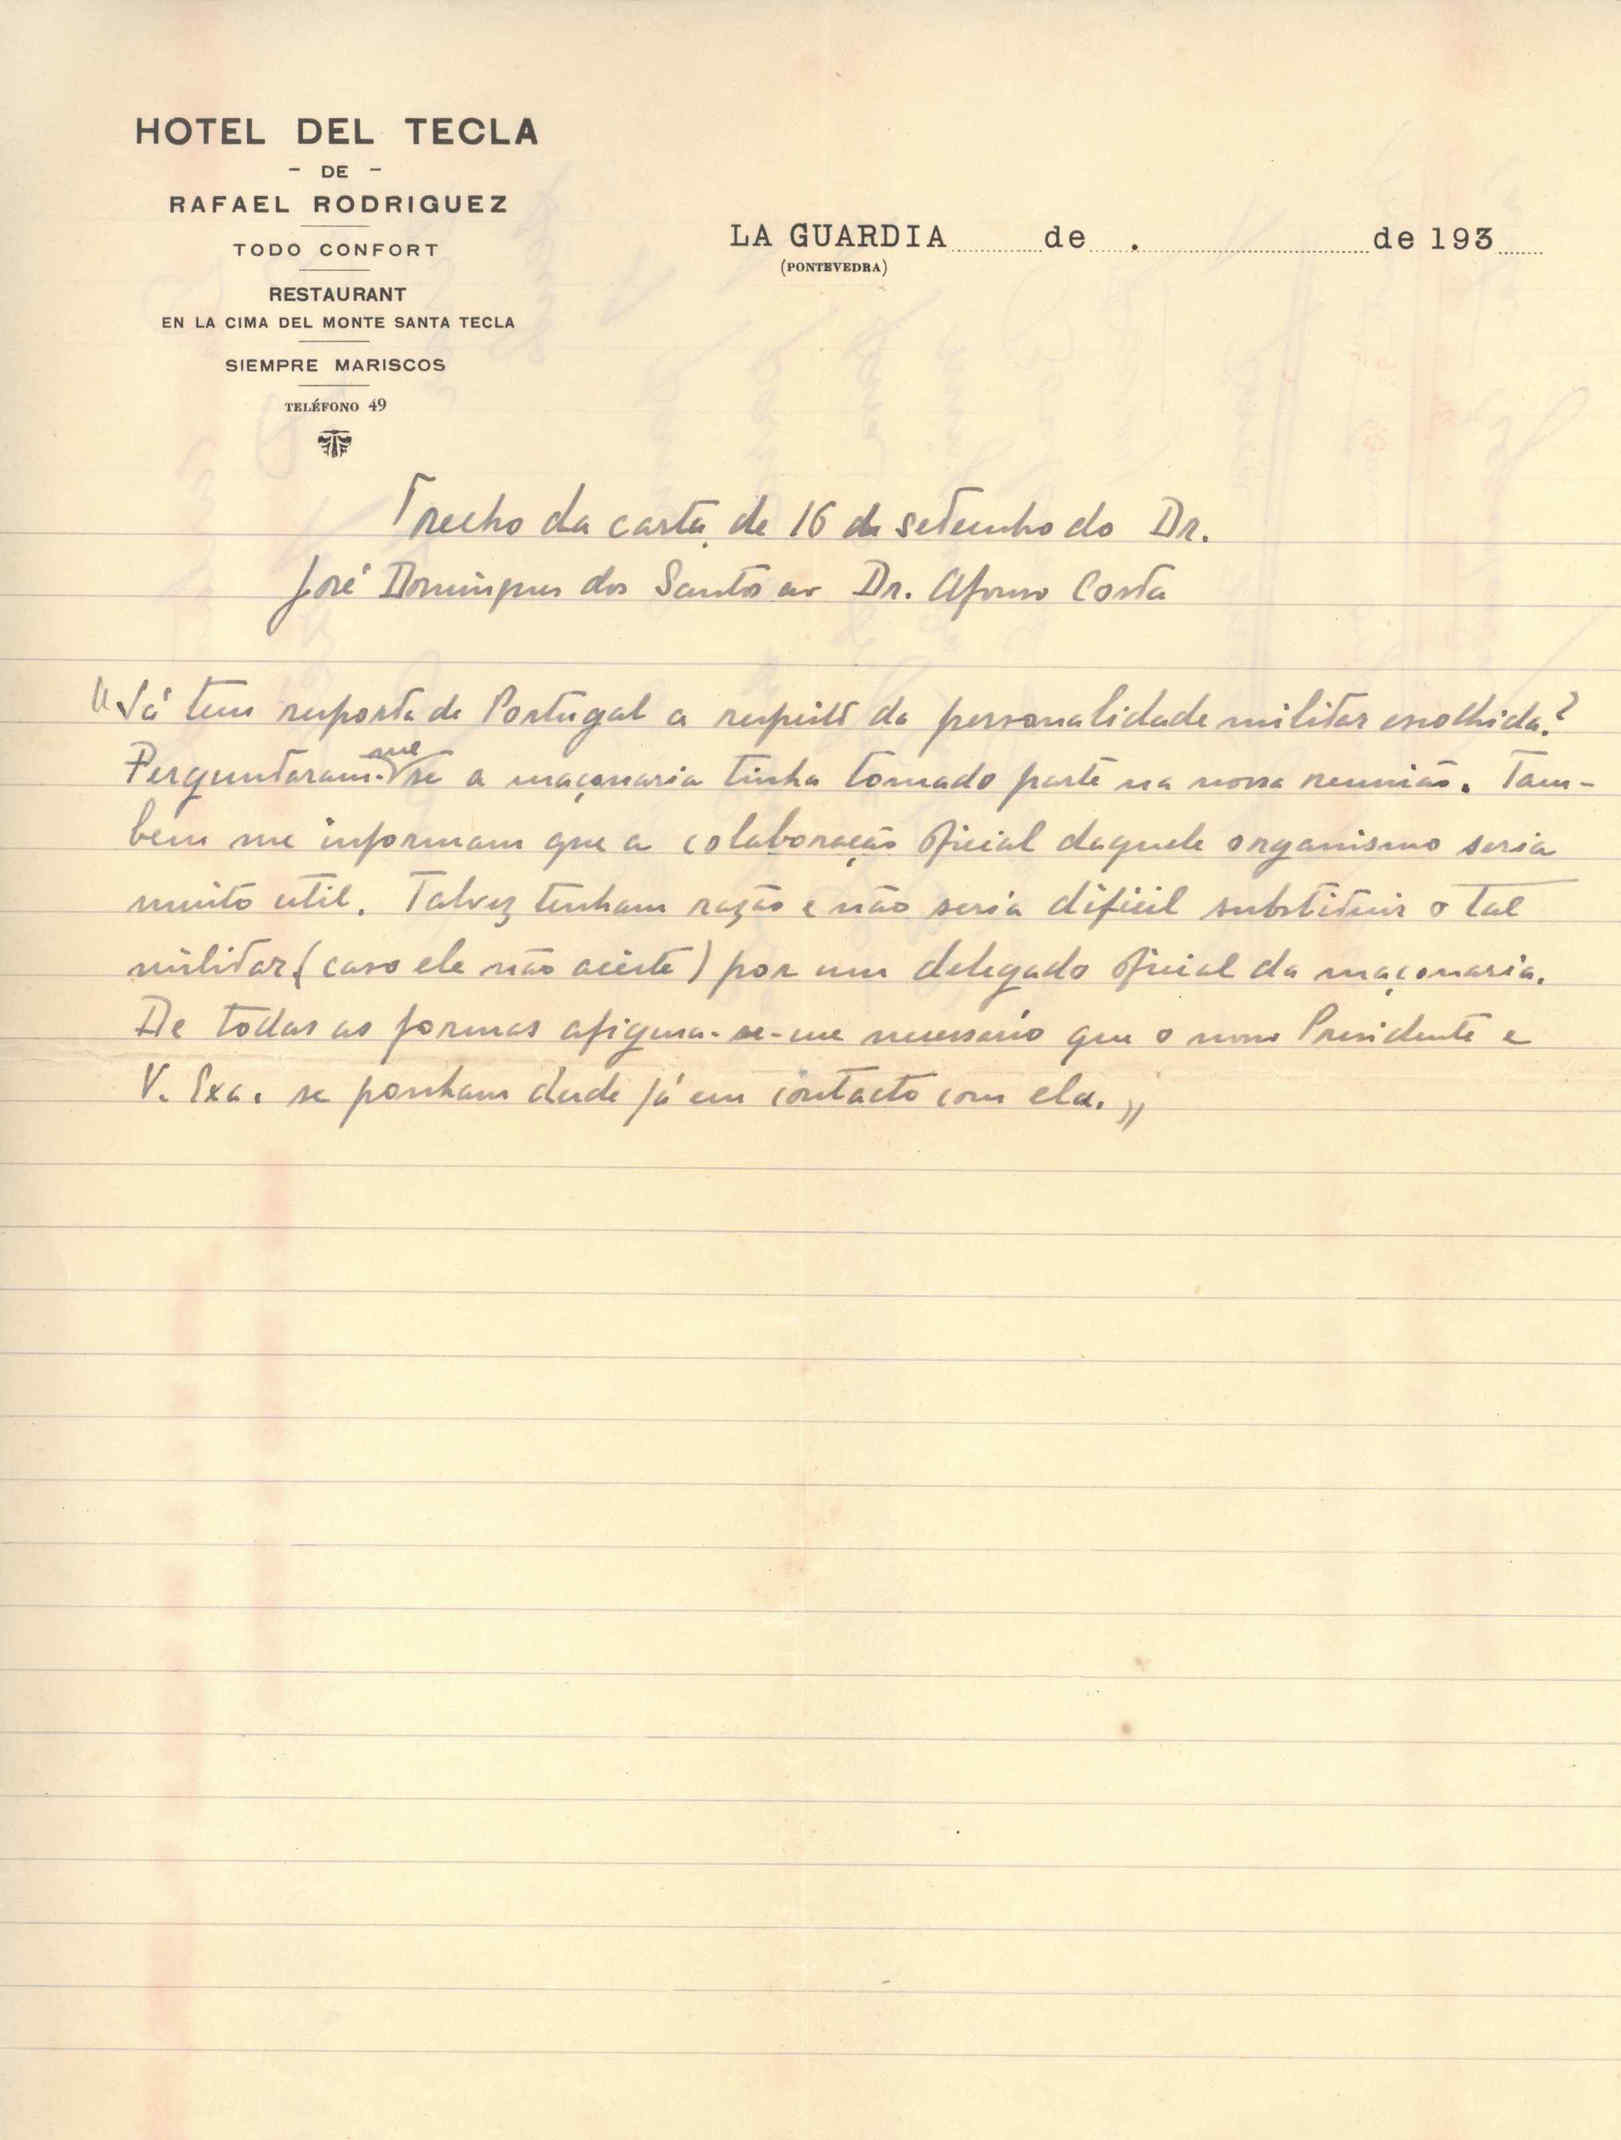 HOTEL DEL TECLA
- DE -
RAFAEL RODRIGUEZ
TODO CONFORT
RESTAURANT
EN LA CIMA DEL MONTE SANTA TECLA
SIEMPRE MARISCOS
TELÉFONO 49
LA GUARDIA de de 193
(PONTEVEDRA)
Trecho da carta de 16 de setembro do Dr.
José Domingues dos Santos ao Dr. Afonso Costa
"Já tem resposta de Portugal a respeito da personalidade militar escolhida?
Perguntaram-me se a maçonaria tinha tomado parte na nossa reunião. Tam-
bem me informam que a colaboração oficial daquele organismo seria
muito util. Talvez tenham razão e não seria dificil substituir o tal
militar (caso ele não aceite) por um delegado oficial da maçonaria.
De todas as formas afigura-se-me necessário que o nosso Presidente e
V. Exa. se ponham desde já em contacto com ela."